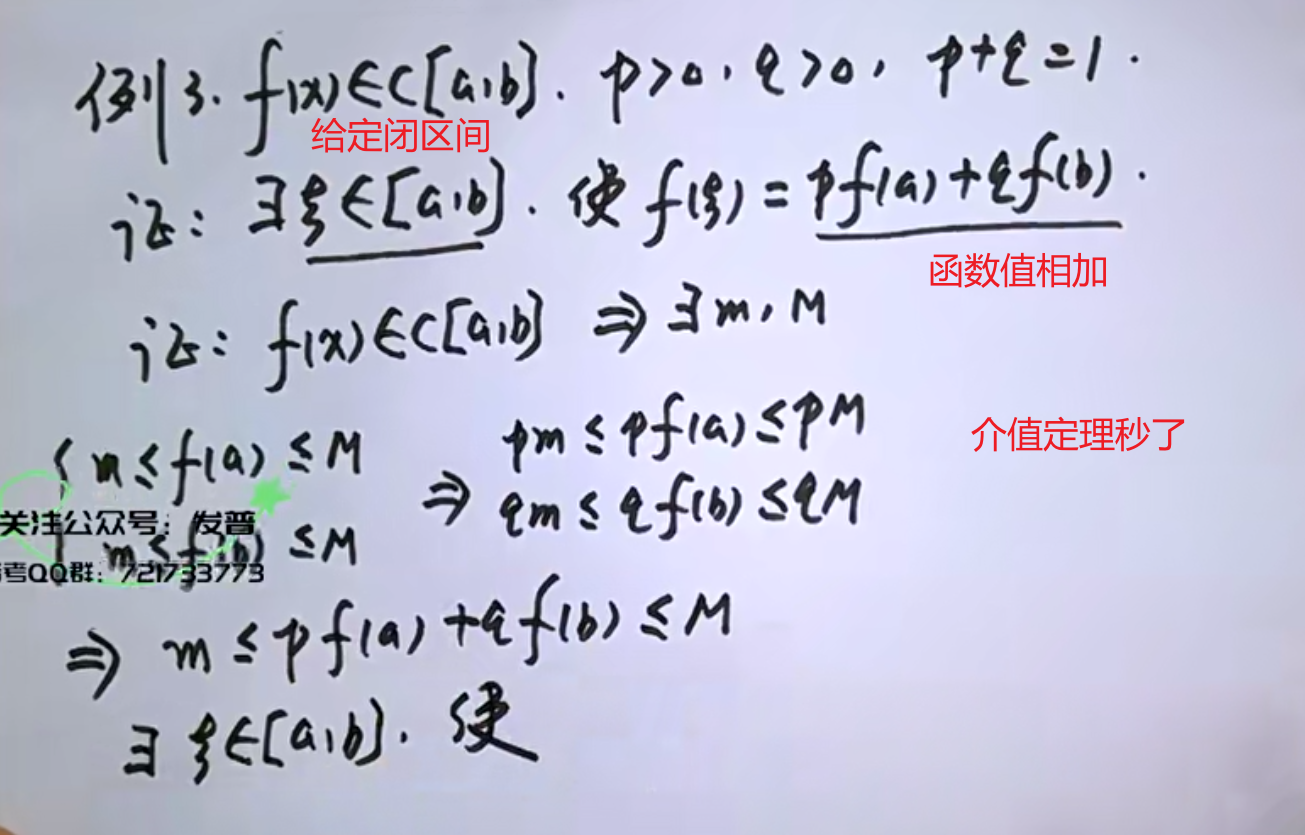 例3. f(x)∈C[a,b]. p>0, q>0, p+q=1.
给定闭区间
证: ∃ξ∈[a,b]. 使 f(ξ)=pf(a)+qf(b).
函数值相加
证: f(x)∈C[a,b] ⇒ ∃m, M
{ m≤f(a)≤M
m≤f(b)≤M
⇒ pm≤pf(a)≤pM
qm≤qf(b)≤qM
介值定理秒了
关注公众号: 发普
考QQ群: 721733773
⇒ m≤pf(a)+qf(b)≤M
∃ξ∈[a,b]. 使